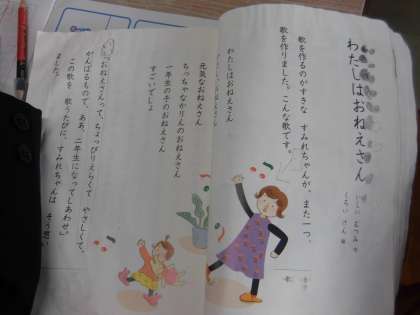 わたしはおねえさん
いしい むつみ 作
くろい けん 絵
歌を作るのがすきな すみれちゃんが、また一つ、
歌を作りました。こんな歌です。
わたしはおねえさん
やさしいおねえさん
元気なおねえさん
ちっちゃなかりんのおねえさん
一年生の子のおねえさん
すごいでしょ
「おねえさんって、ちょっぴりえらくて やさしくて、
がんばるもので、ああ、二年生になってしあわせ。」
この歌を 歌うたびに、すみれちゃんは そう思い
ました。
歌